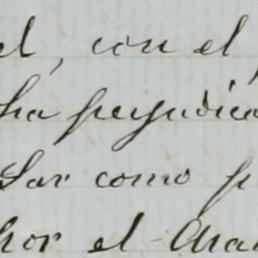 el, con el
ha perjudica
Sar como p
hor el Ara